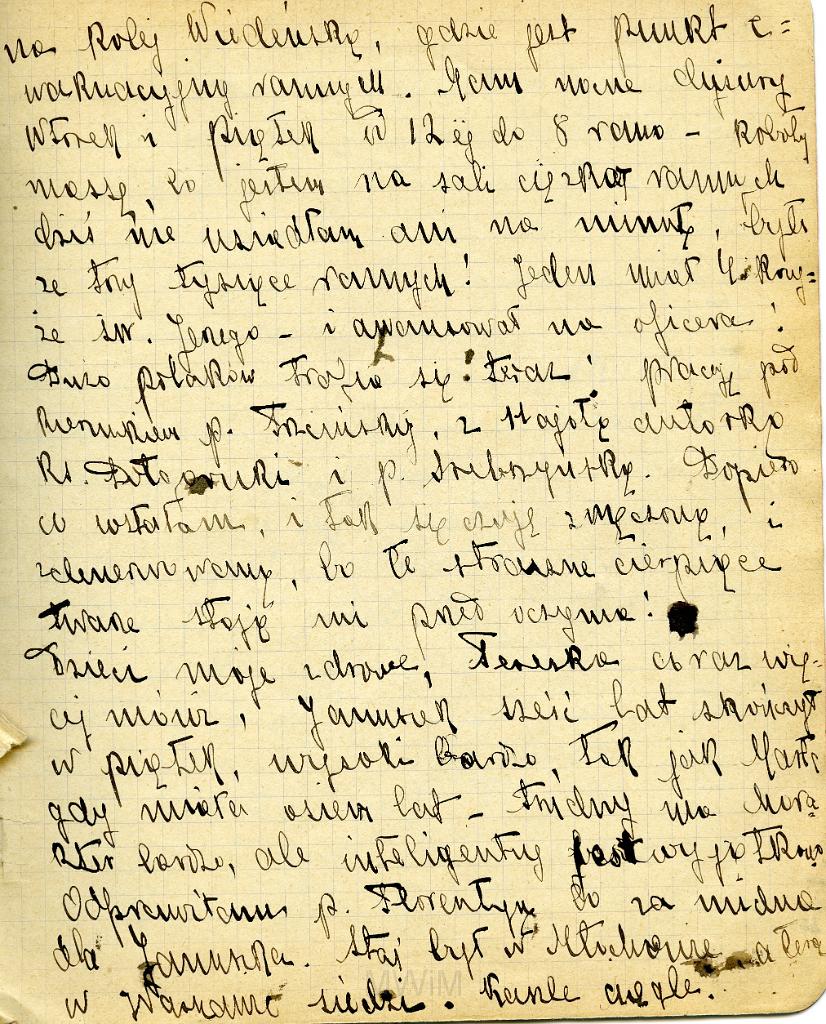 na kolej Wiedeńską, gdzie jest punkt e=
wakuacyjny rannych. Mam nocne dyżury
Wtorek i piątek od 12ej do 8 rano – roboty
masę, bo jestem na sali ciężko rannych
dziś nie usiadłam ani na minutę, było
ze trzy tysiące rannych! Jeden miał 4 krzy=
że św. Jerzego – i awansował na oficera!
Dużo polaków trafia się teraz! pracuję pod
kierunkiem p. Trzcińskiej, z
ks. i p. Srebrzyńską. Dopiero
co wstałam, i tak się czuję zmęczoną, i
zdenerwowaną, bo te straszne cierpiące
twarze stoją mi przed oczyma!
Dzieci moje zdrowe, Tereska coraz wię-
cej mówi, Januszek sześć lat skończył
w piątek, wysoki bardzo, tak jak
gdy miała osiem lat – trudny ma chara-
kter bardzo, ale inteligentny jest wyjątkowo
Odprawiłam p. Florentynę bo za nudna
dla Januszka. Staś był w Młochowie a teraz
w Warszawie siedzi. Kaszle ciągle.
MWiM